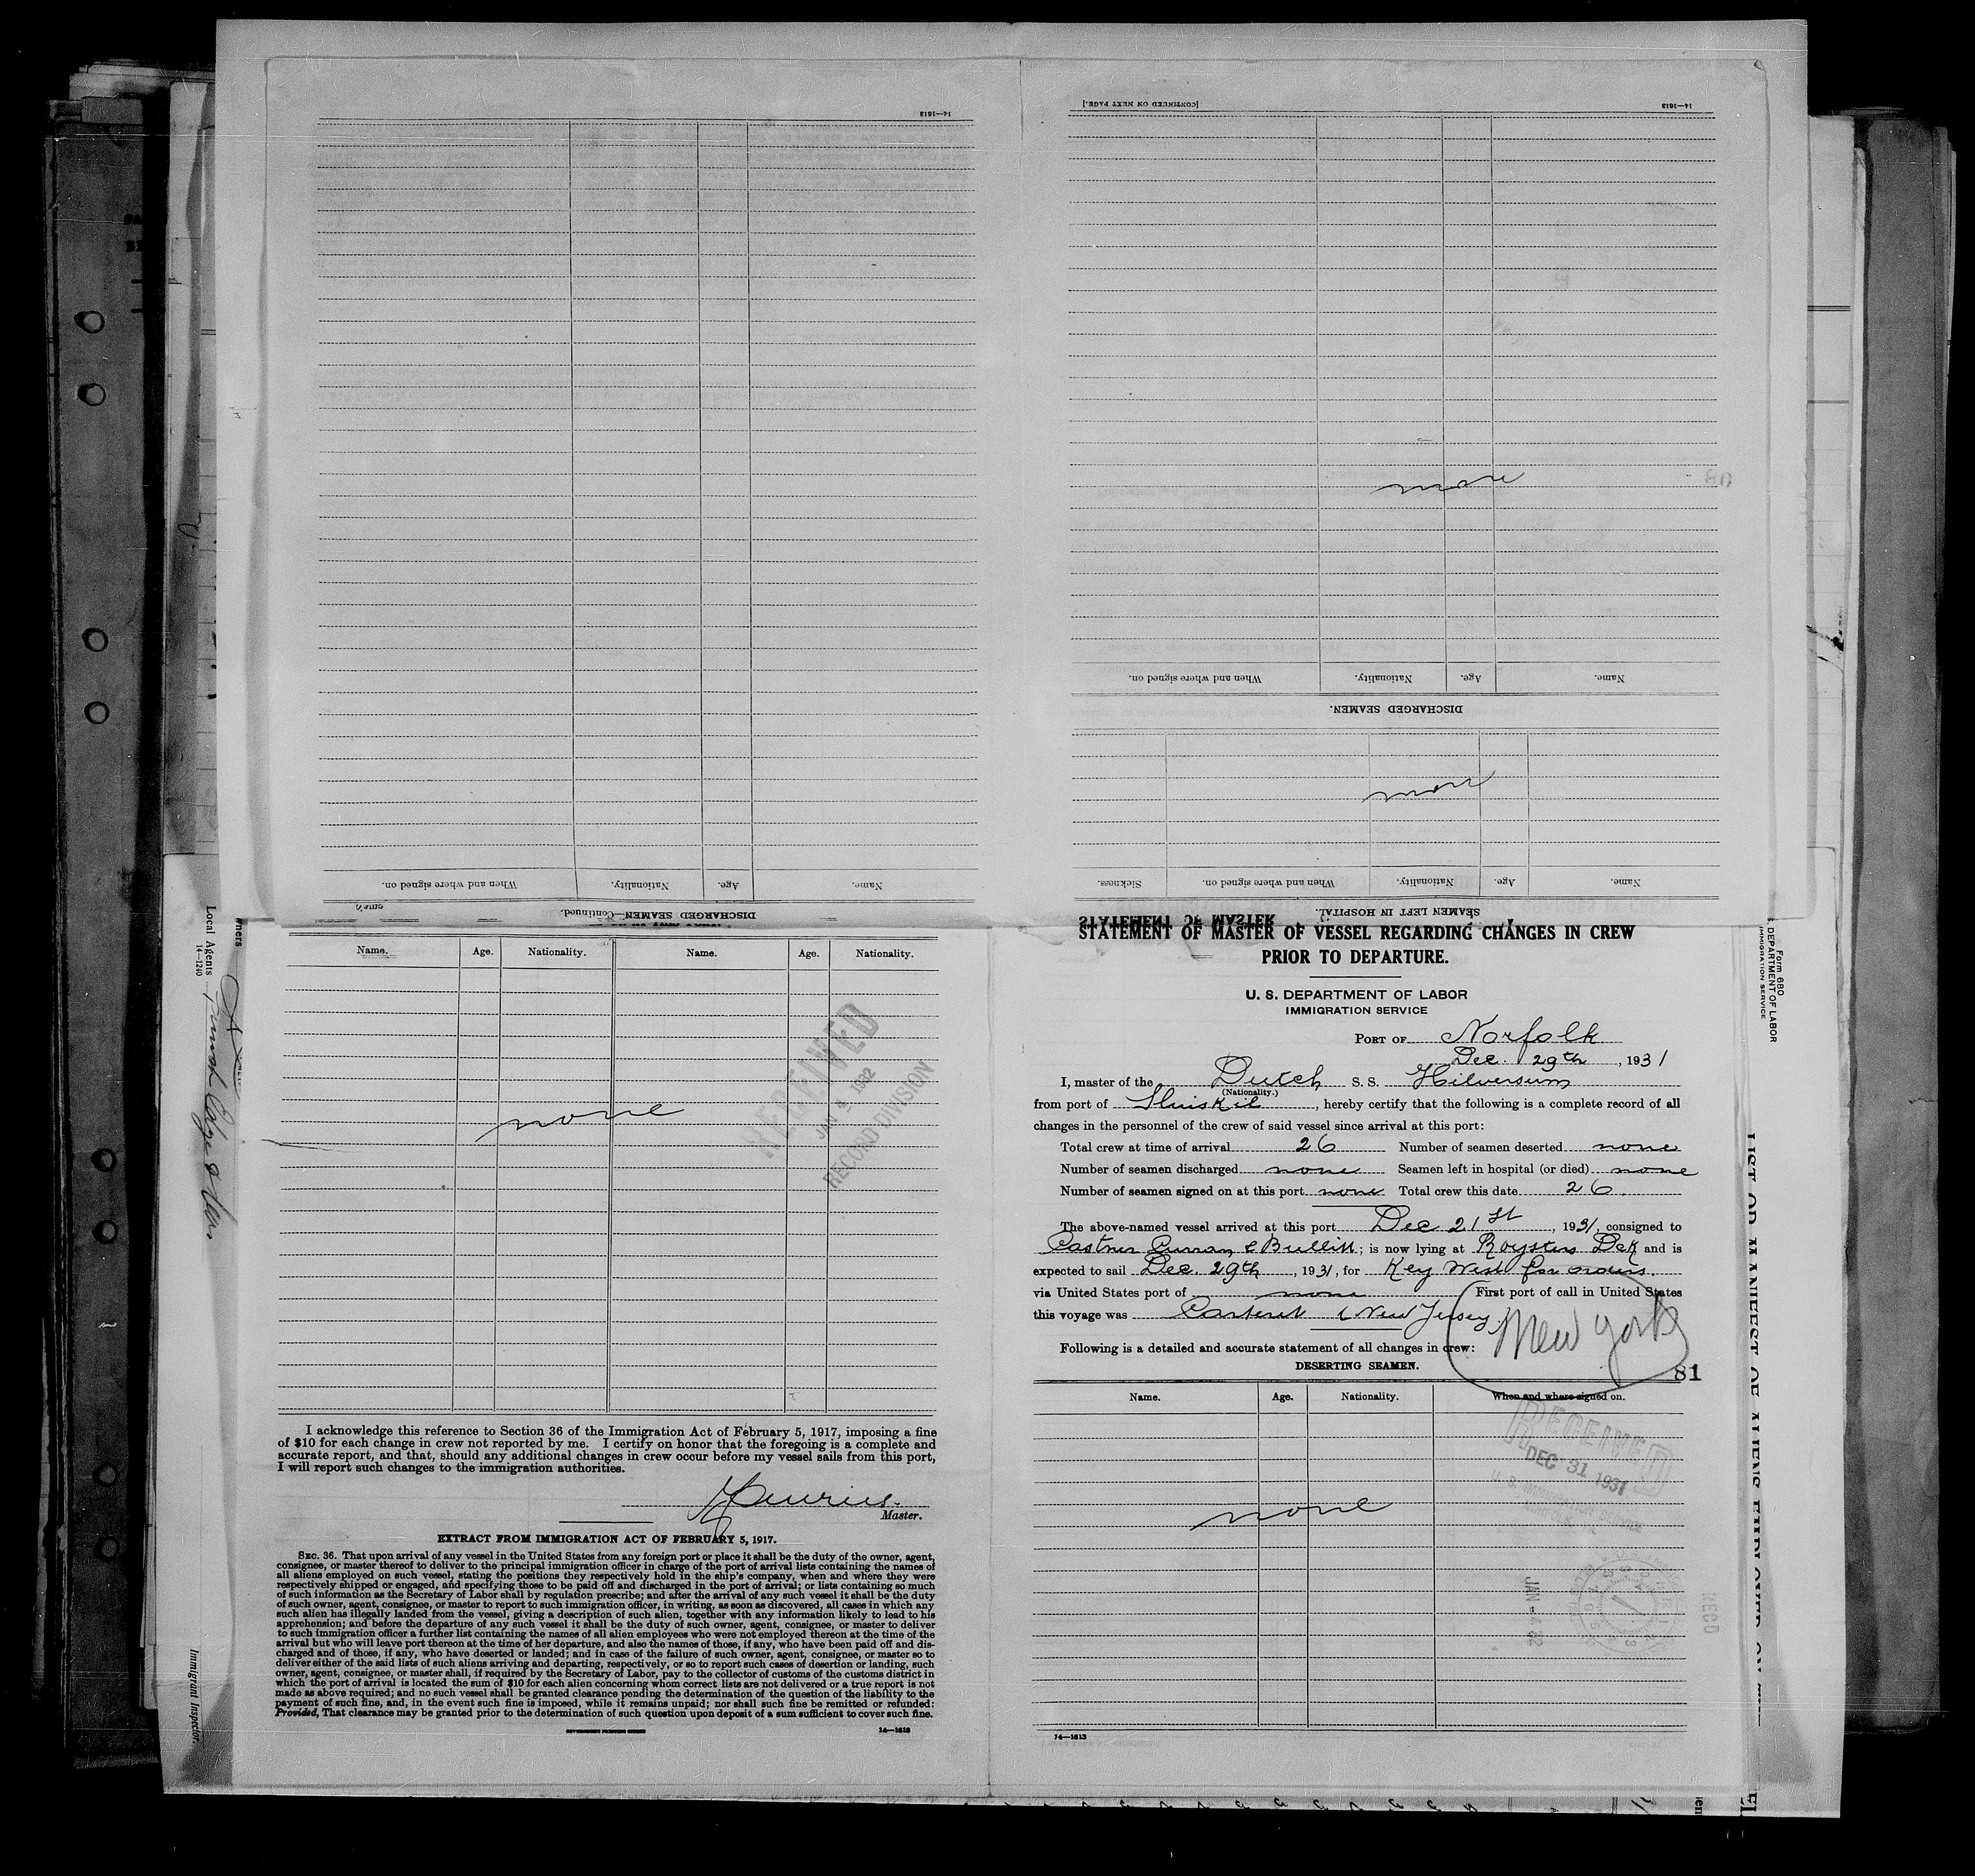 14—1613
[CONTINUED ON NEXT PAGE.]
14—1613
none
When and where signed on. Nationality. Age. Name.
DISCHARGED SEAMEN.
none
Sickness. When and where signed on. Nationality. Age. Name.
SEAMEN LEFT IN HOSPITAL.
When and where signed on. Nationality. Age. Name.
DISCHARGED SEAMEN—Continued.
Name. Age. Nationality. Name. Age. Nationality.
none
RECEIVED
JAN 4 1932
RECORD DIVISION
I acknowledge this reference to Section 36 of the Immigration Act of February 5, 1917, imposing a fine
of $10 for each change in crew not reported by me. I certify on honor that the foregoing is a complete and
accurate report, and that, should any additional changes in crew occur before my vessel sails from this port,
I will report such changes to the immigration authorities.
Master.
EXTRACT FROM IMMIGRATION ACT OF FEBRUARY 5, 1917.
SEC. 36. That upon arrival of any vessel in the United States from any foreign port or place it shall be the duty of the owner, agent,
consignee, or master thereof to deliver to the principal immigration officer in charge of the port of arrival lists containing the names of
all aliens employed on such vessel, stating the positions they respectively hold in the ship's company, when and where they were
respectively shipped or engaged, and specifying those to be paid off and discharged in the port of arrival; or lists containing so much
of such information as the Secretary of Labor shall by regulation prescribe; and after the arrival of any such vessel it shall be the duty
of such owner, agent, consignee, or master to report to such immigration officer, in writing, as soon as discovered, all cases in which any
such alien has illegally landed from the vessel, giving a description of such alien, together with any information likely to lead to his
apprehension; and before the departure of any such vessel it shall be the duty of such owner, agent, consignee, or master to deliver
to such immigration officer a further list containing the names of all alien employees who were not employed thereon at the time of the
arrival but who will leave port thereon at the time of her departure, and also the names of those, if any, who have been paid off and dis-
charged and of those, if any, who have deserted or landed; and in case of the failure of such owner, agent, consignee, or master so to
deliver either of the said lists of such aliens arriving and departing, respectively, or so to report such cases of desertion or landing, such
owner, agent, consignee, or master shall, if required by the Secretary of Labor, pay to the collector of customs of the customs district in
which the port of arrival is located the sum of $10 for each alien concerning whom correct lists are not delivered or a true report is not
made as above required; and no such vessel shall be granted clearance pending the determination of the question of the liability to the
payment of such fine, and, in the event such fine is imposed, while it remains unpaid; nor shall such fine be remitted or refunded:
Provided, That clearance may be granted prior to the determination of such question upon deposit of a sum sufficient to cover such fine.
GOVERNMENT PRINTING OFFICE 14—1613
STATEMENT OF MASTER OF VESSEL REGARDING CHANGES IN CREW
PRIOR TO DEPARTURE.
U. S. DEPARTMENT OF LABOR
IMMIGRATION SERVICE
PORT OF Norfolk
Dec. 29th, 1931
I, master of the Dutch S. S. Hilversum
(Nationality.)
from port of Sluiskil, hereby certify that the following is a complete record of all
changes in the personnel of the crew of said vessel since arrival at this port:
Total crew at time of arrival 26 Number of seamen deserted none
Number of seamen discharged none Seamen left in hospital (or died) none
Number of seamen signed on at this port none Total crew this date 26.
The above-named vessel arrived at this port Dec 21st, 1931, consigned to
Castner Curran & Bullitt; is now lying at Roysters Dck and is
expected to sail Dec. 29th, 1931, for Key West for orders.
via United States port of none First port of call in United States
this voyage was Carteret (New Jersey)
New York
Following is a detailed and accurate statement of all changes in crew:
DESERTING SEAMEN.
81
Name. Age. Nationality. When and where signed on.
RECEIVED
DEC 31 1931
U. S. IMMIGRATION SERVICE
none
JAN -4 32
REC'D
14—1613
Form 680
U. S. DEPARTMENT OF LABOR
IMMIGRATION SERVICE
LIST OR MANIFEST OF ALIENS EMPLOYED ON THE
Local Agents
14—1240
Immigrant Inspector.